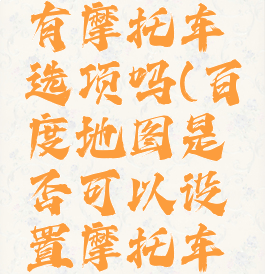 有摩托车
选项吗(百
度地图是
否可以设
置摩托车